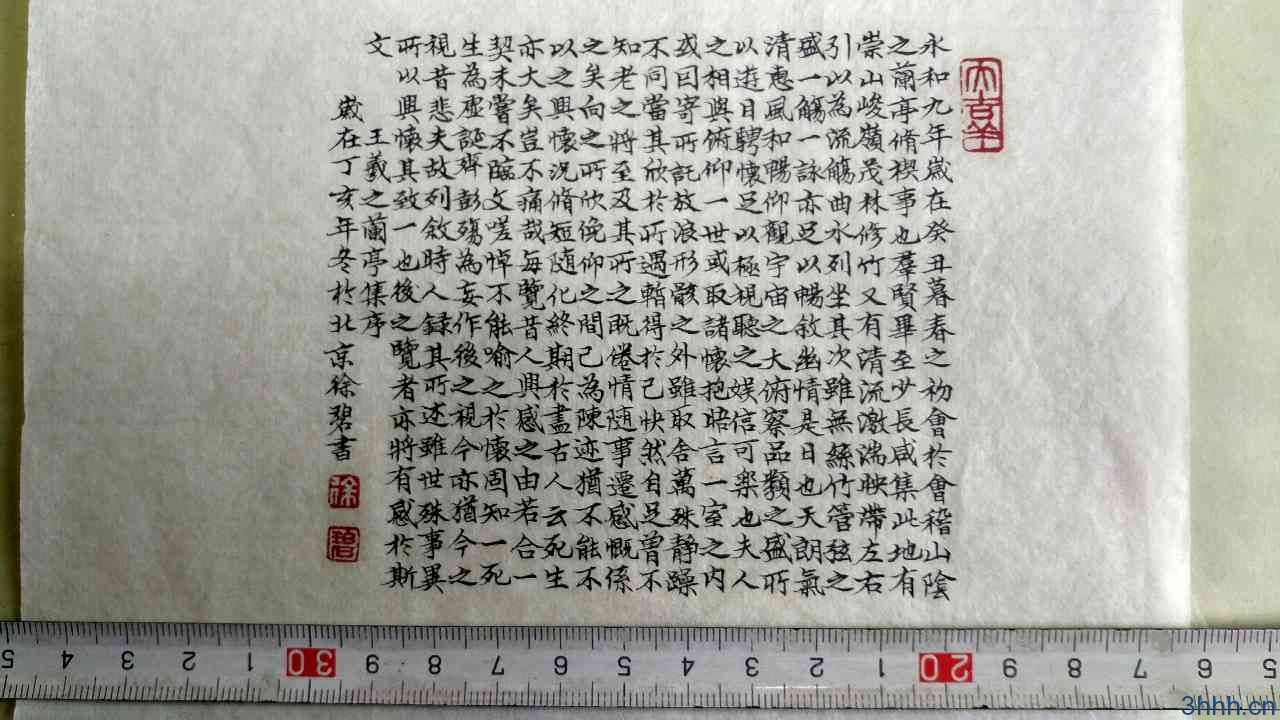 大吉羊
永和九年歲在癸丑暮春之初會於會稽山陰
之蘭亭脩禊事也羣賢畢至少長咸集此地有
崇山峻嶺茂林修竹又有清流激湍映帶左右
引以為流觴曲水列坐其次雖無絲竹管弦之
盛一觴一詠亦足以暢敘幽情是日也天朗氣
清惠風和暢仰觀宇宙之大俯察品類之盛所
以遊目騁懷足以極視聽之娛信可樂也夫人
之相與俯仰一世或取諸懷抱晤言一室之內
或因寄所託放浪形骸之外雖取舍萬殊静躁
不同當其欣於所遇暫得於己快然自足曾不
知老之將至及其所之既倦情隨事遷感慨係
之矣向之所欣俛仰之間已為陳迹猶不能不
以之興懷況脩短随化終期於盡古人云死生
亦大矣豈不痛哉每覽昔人興感之由若合一
契未嘗不臨文嗟悼不能喻之於懷固知一死
生為虛誕齊彭殤為妄作後之視今亦猶今之
視昔悲夫故列敘時人録其所述雖世殊事異
所以興懷其致一也後之覽者亦將有感於斯
文
王羲之蘭亭集序
歲在丁亥年冬於北京徐碧書
徐
碧
5 4 3 2 1 30 9 8 7 6 5 4 3 2 1 20 9 8 7 6 5
3hhh.cn